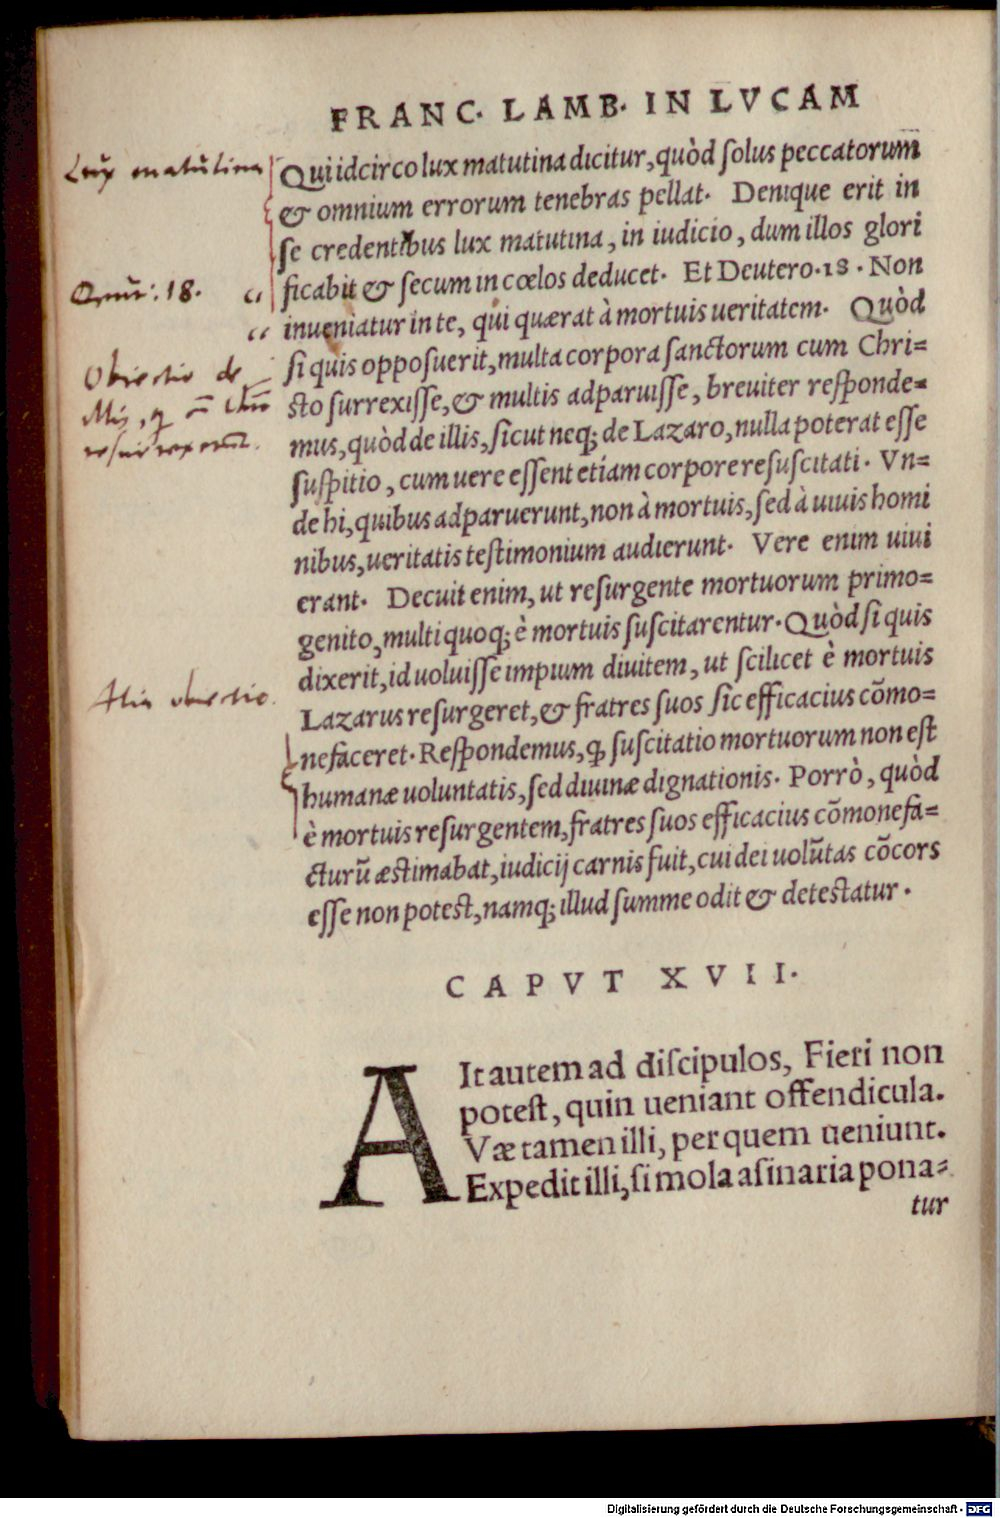 FRANC. LAMB. IN LVCAM
Lux matutina
Qui idcirco lux matutina dicitur, quòd ſolus peccatorum
& omnium errorum tenebras pellat. Denique erit in
ſe credentibus lux matutina, in iudicio, dum illos glori
ficabit & ſecum in cœlos deducet. Et Deutero. 18. Non
inueniatur in te, qui quærat à mortuis ueritatem. Quòd
ſi quis oppoſuerit, multa corpora ſanctorum cum Chri=
ſto ſurrexiſſe, & multis adparuiſſe, breuiter reſponde=
mus, quòd de illis, ſicut neq; de Lazaro, nulla poterat eſſe
ſuſpitio, cum uere eſſent etiam corpore reſuſcitati. Vn=
de hi, quibus adparuerunt, non à mortuis, ſed à uiuis homi
nibus, ueritatis teſtimonium audierunt. Vere enim uiui
erant. Decuit enim, ut reſurgente mortuorum primo=
genito, multi quoq; è mortuis ſuſcitarentur. Quòd ſi quis
dixerit, id uoluiſſe impium diuitem, ut ſcilicet è mortuis
Lazarus reſurgeret, & fratres ſuos ſic efficacius cõmo=
nefaceret. Reſpondemus, ꝙ ſuſcitatio mortuorum non eſt
humanæ uoluntatis, ſed diuinæ dignationis. Porrò, quòd
è mortuis reſurgentem, fratres ſuos efficacius cõmonefa=
cturũ æſtimabat, iudicij carnis fuit, cui dei uolũtas cõcors
eſſe non poteſt, namq; illud ſumme odit & deteſtatur.
18.
Obiectio de
Alia obiectio.
CAPVT XVII.
AIt autem ad diſcipulos, Fieri non
poteſt, quin ueniant offendicula.
Væ tamen illi, per quem ueniunt.
Expedit illi, ſi mola aſinaria pona=
tur
Digitalisierung gefördert durch die Deutsche Forschungsgemeinschaft - DFG